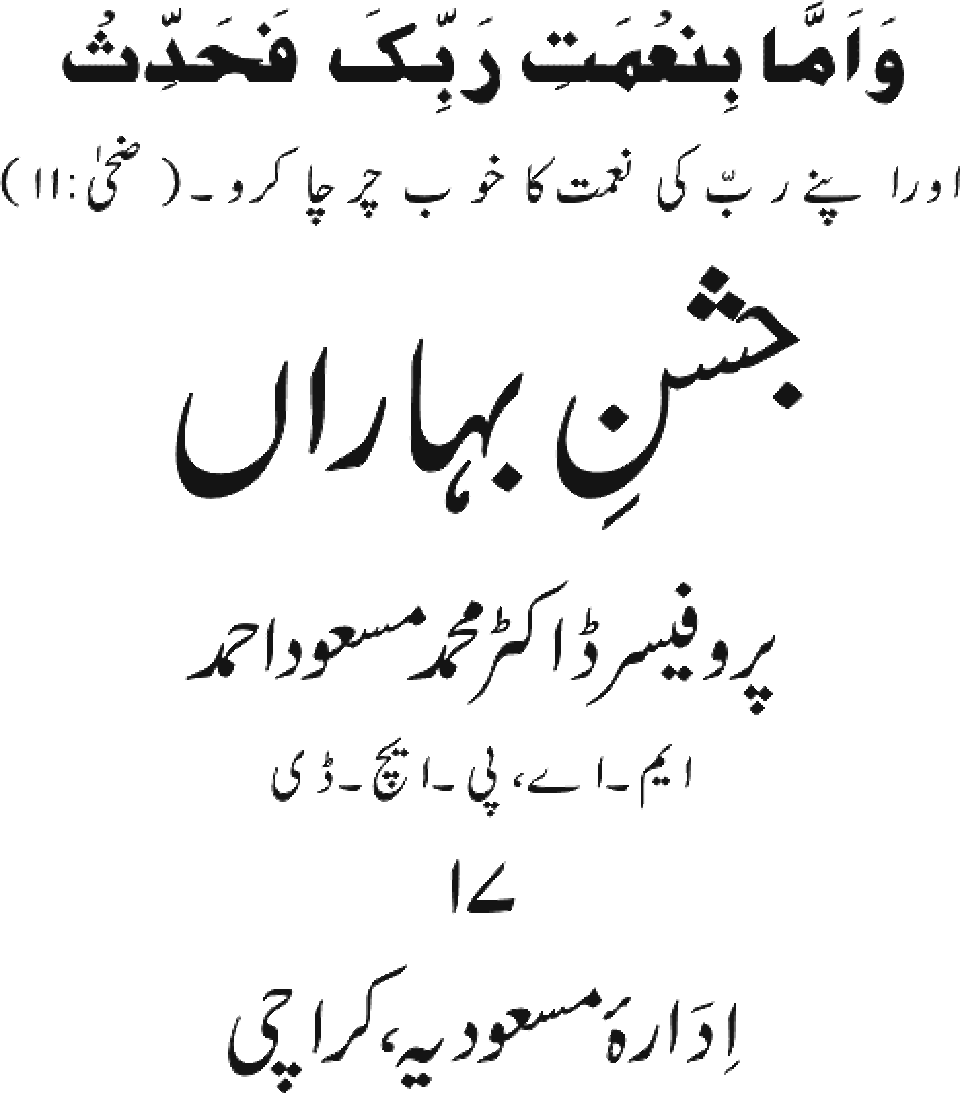 وَاَمَّا بِنِعْمَتِ رَبِّکَ فَحَدِّثْ
اور اپنے ربّ کی نعمت کا خوب چرچا کرو۔ (ضحیٰ:۱۱)
جشنِ بہاراں
پروفیسر ڈاکٹر محمد مسعود احمد
ایم۔اے، پی۔ایچ۔ڈی
۱۷
اِدَارۂ مسعودیہ، کراچی